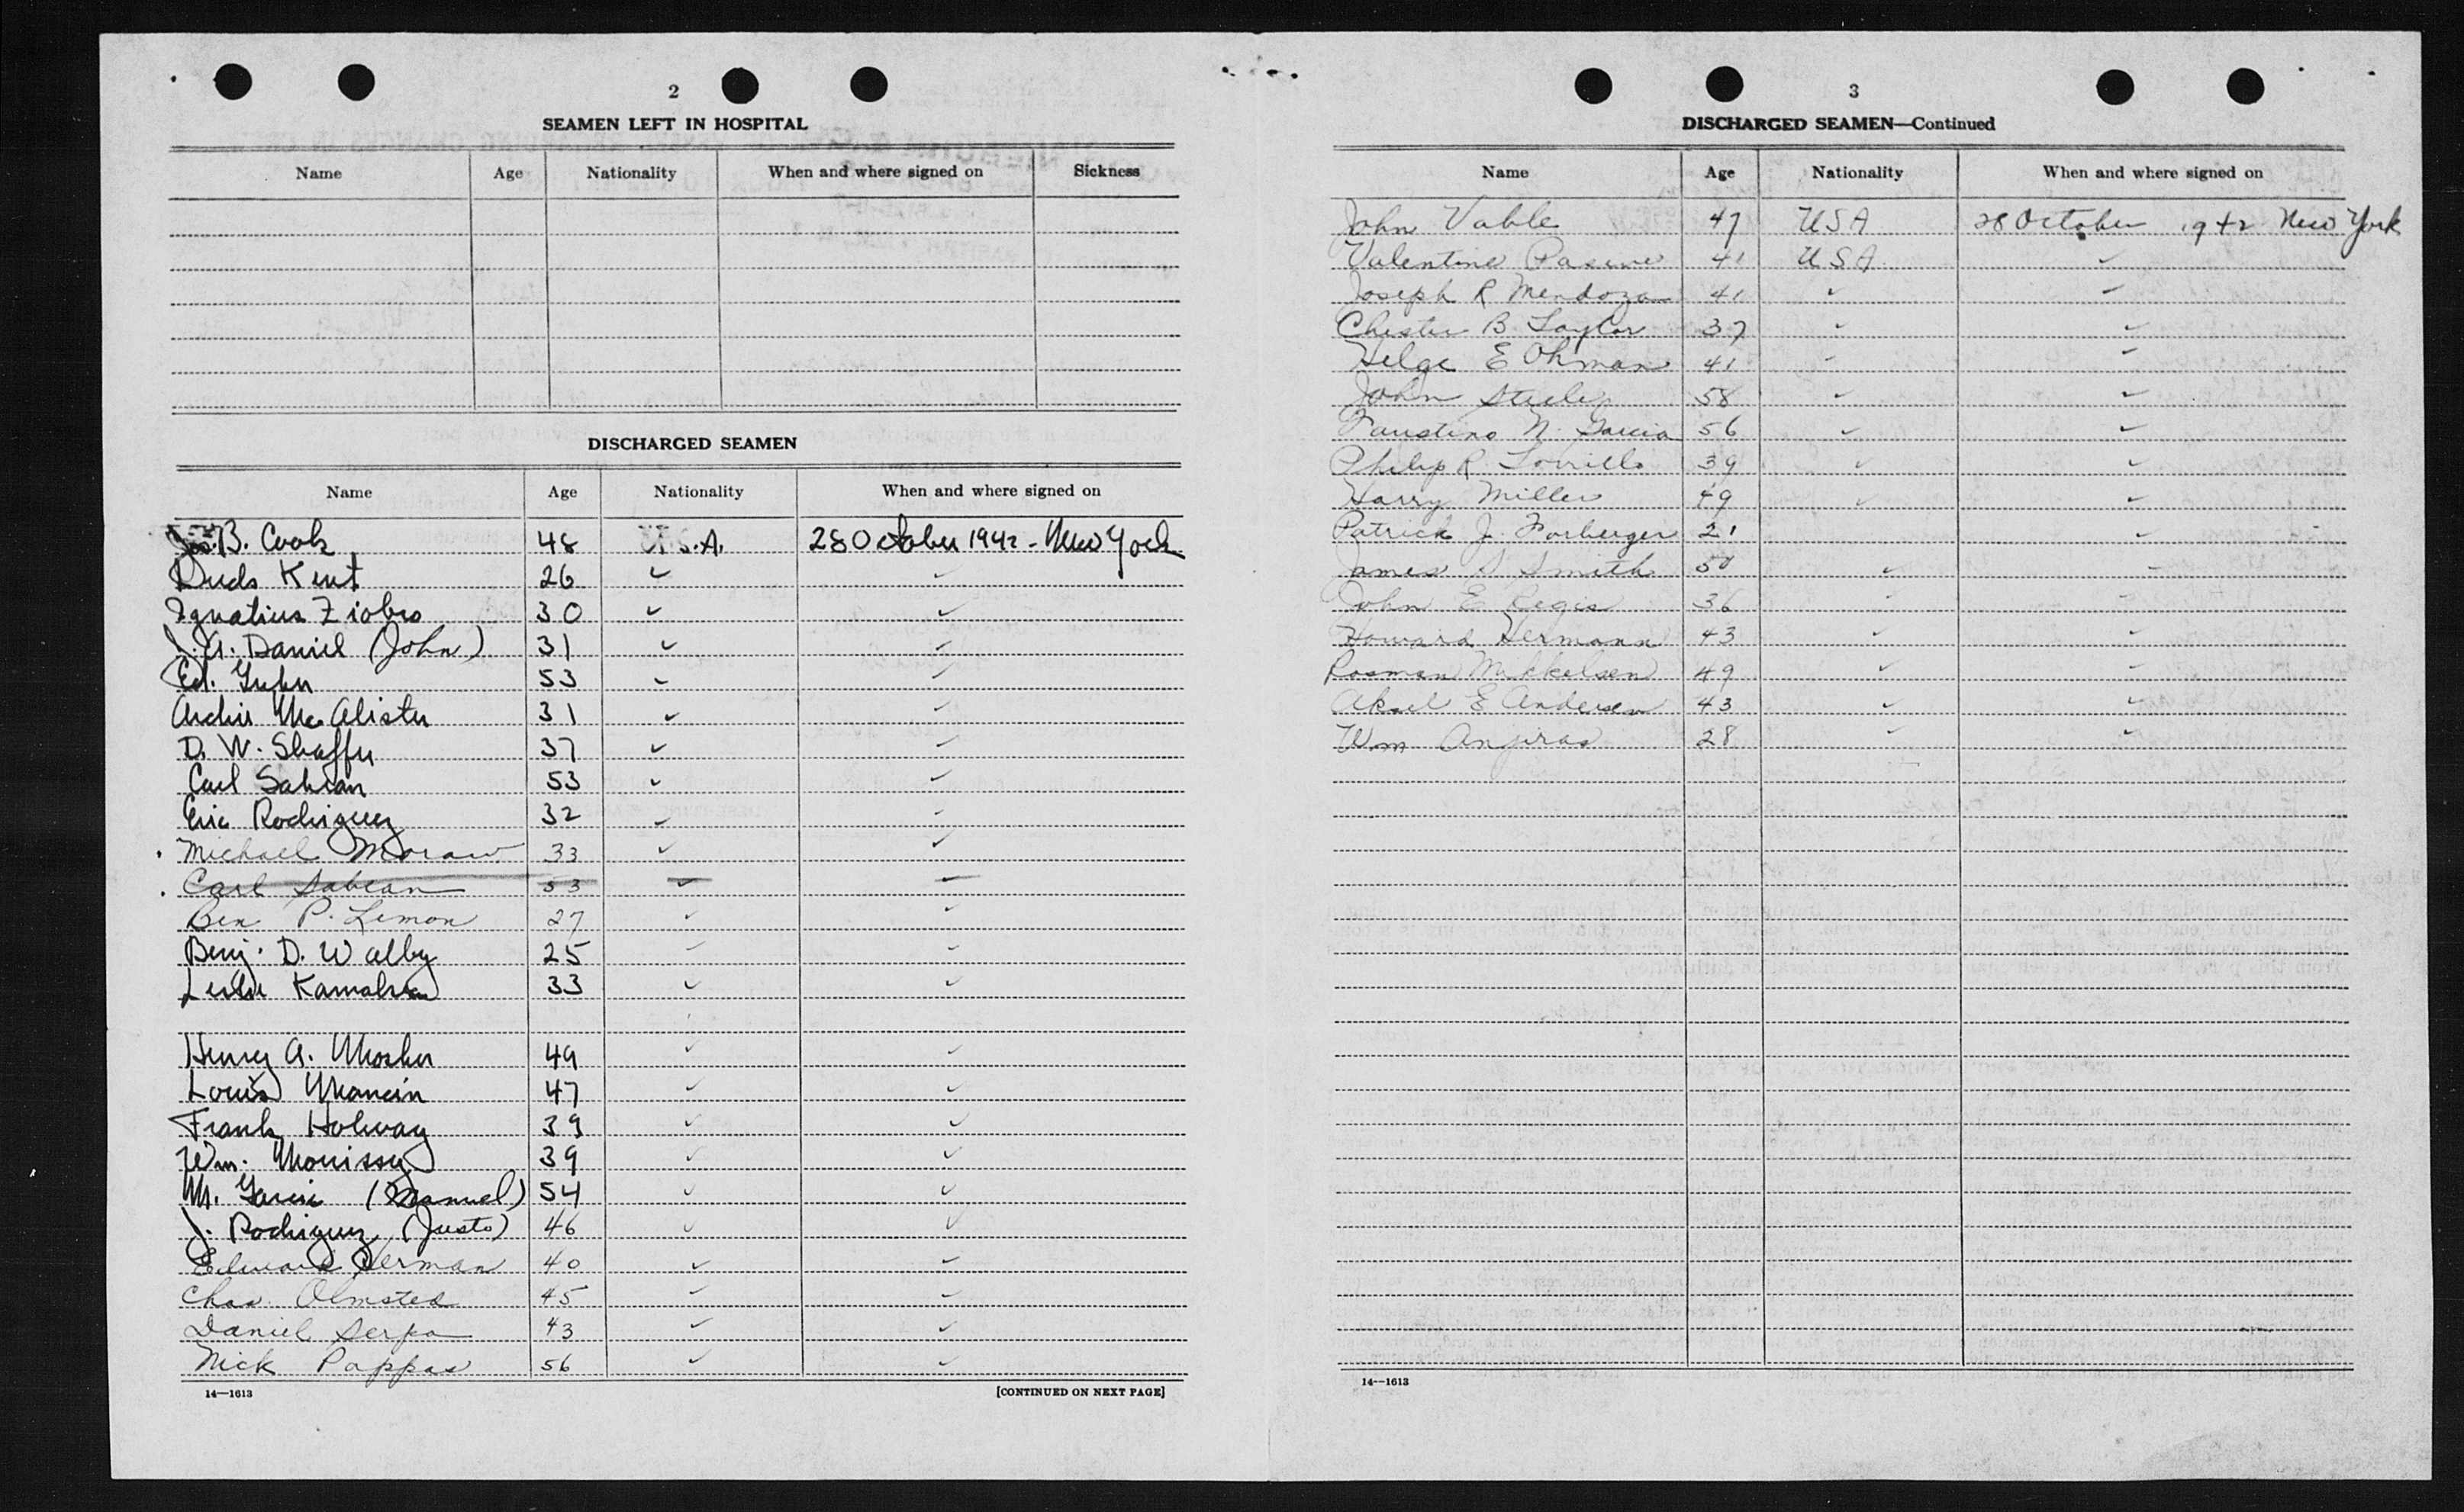 2
SEAMEN LEFT IN HOSPITAL
Name Age Nationality When and where signed on Sickness
DISCHARGED SEAMEN
Name Age Nationality When and where signed on
Jos. B. Cook 48 U.S.A. 28 October 1942 - New York
Duds Kent 26 ✓ ✓
Ignatius Ziobro 30 ✓ ✓
J. A. Daniel (John) 31 ✓ ✓
Ed. 53 ✓ ✓
Archie McAlister 31 ✓ ✓
D. W. Shaffer 37 ✓ ✓
Carl Sabean 53 ✓ ✓
Eric Rodriguez 32 ✓ ✓
Michael Moraw 33 ✓ ✓
Carl Sabean 53 ✓ ✓
Ben P. Lemon 27 ✓ ✓
Benj. D. Walby 25 ✓ ✓
Leslie 33 ✓ ✓
Henry A. Mosher 49 ✓ ✓
Louis Mancin 47 ✓ ✓
Frank Holway 39 ✓ ✓
Wm. Morrissy 39 ✓ ✓
M. Garcia (Manuel) 54 ✓ ✓
J. Rodriguez (Justo) 46 ✓ ✓
Edward Herman 40 ✓ ✓
Chas. Olmsted 45 ✓ ✓
Daniel Serpa 43 ✓ ✓
Nick Pappas 56 ✓ ✓
14—1613 [CONTINUED ON NEXT PAGE]
3
DISCHARGED SEAMEN—Continued
Name Age Nationality When and where signed on
John Vable 47 USA 28 October 1942 New York
Valentine 41 USA ✓
Joseph R Mendoza 41 ✓ ✓
Chester B. Taylor 37 ✓ ✓
Helge E Ohman 41 ✓ ✓
John Steele 58 ✓ ✓
Faustino N. Garcia 56 ✓ ✓
Philip R. 39 ✓ ✓
Harry Miller 49 ✓ ✓
Patrick J. Forberger 21 ✓
James S Smith 50 ✓ ✓
John E Regis 36 ✓ ✓
Howard Hermann 43 ✓ ✓
Rasman Mikkelsen 49 ✓ ✓
Aksel E Andersen 43 ✓ ✓
Wm 28 ✓ ✓
14—1613